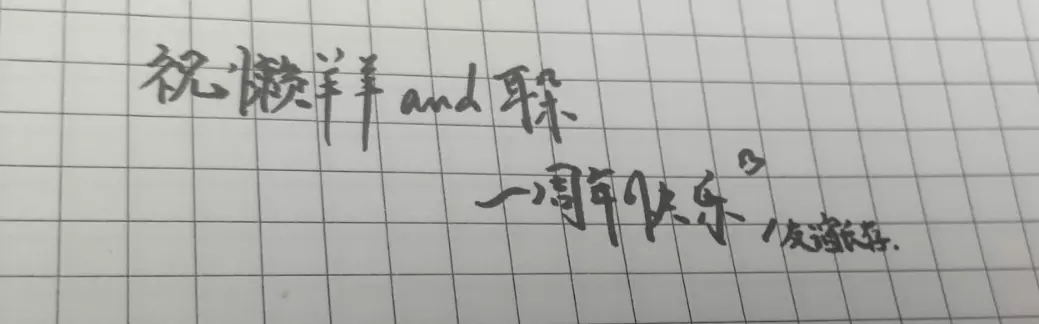 祝懒羊羊and耳朵
一周年快乐
,友谊长存.